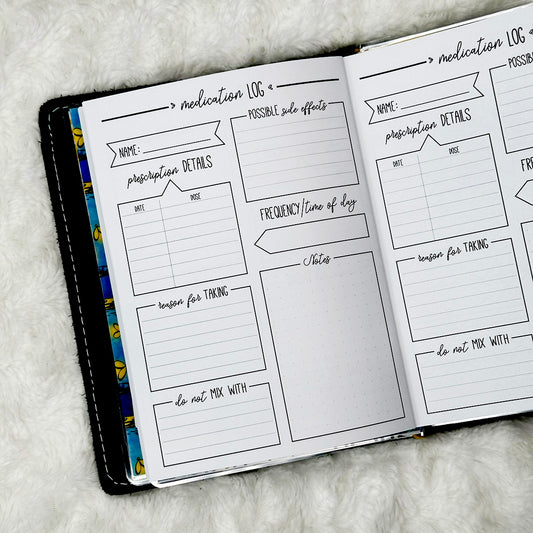 medication LOG
NAME:
prescription DETAILS
DATE DOSE
reason for TAKING
do not MIX WITH
POSSIBLE side effects
FREQUENCY/time of day
Notes
medication LOG
NAME:
prescription DETAILS
DATE DOSE
reason for TAKING
do not MIX WITH